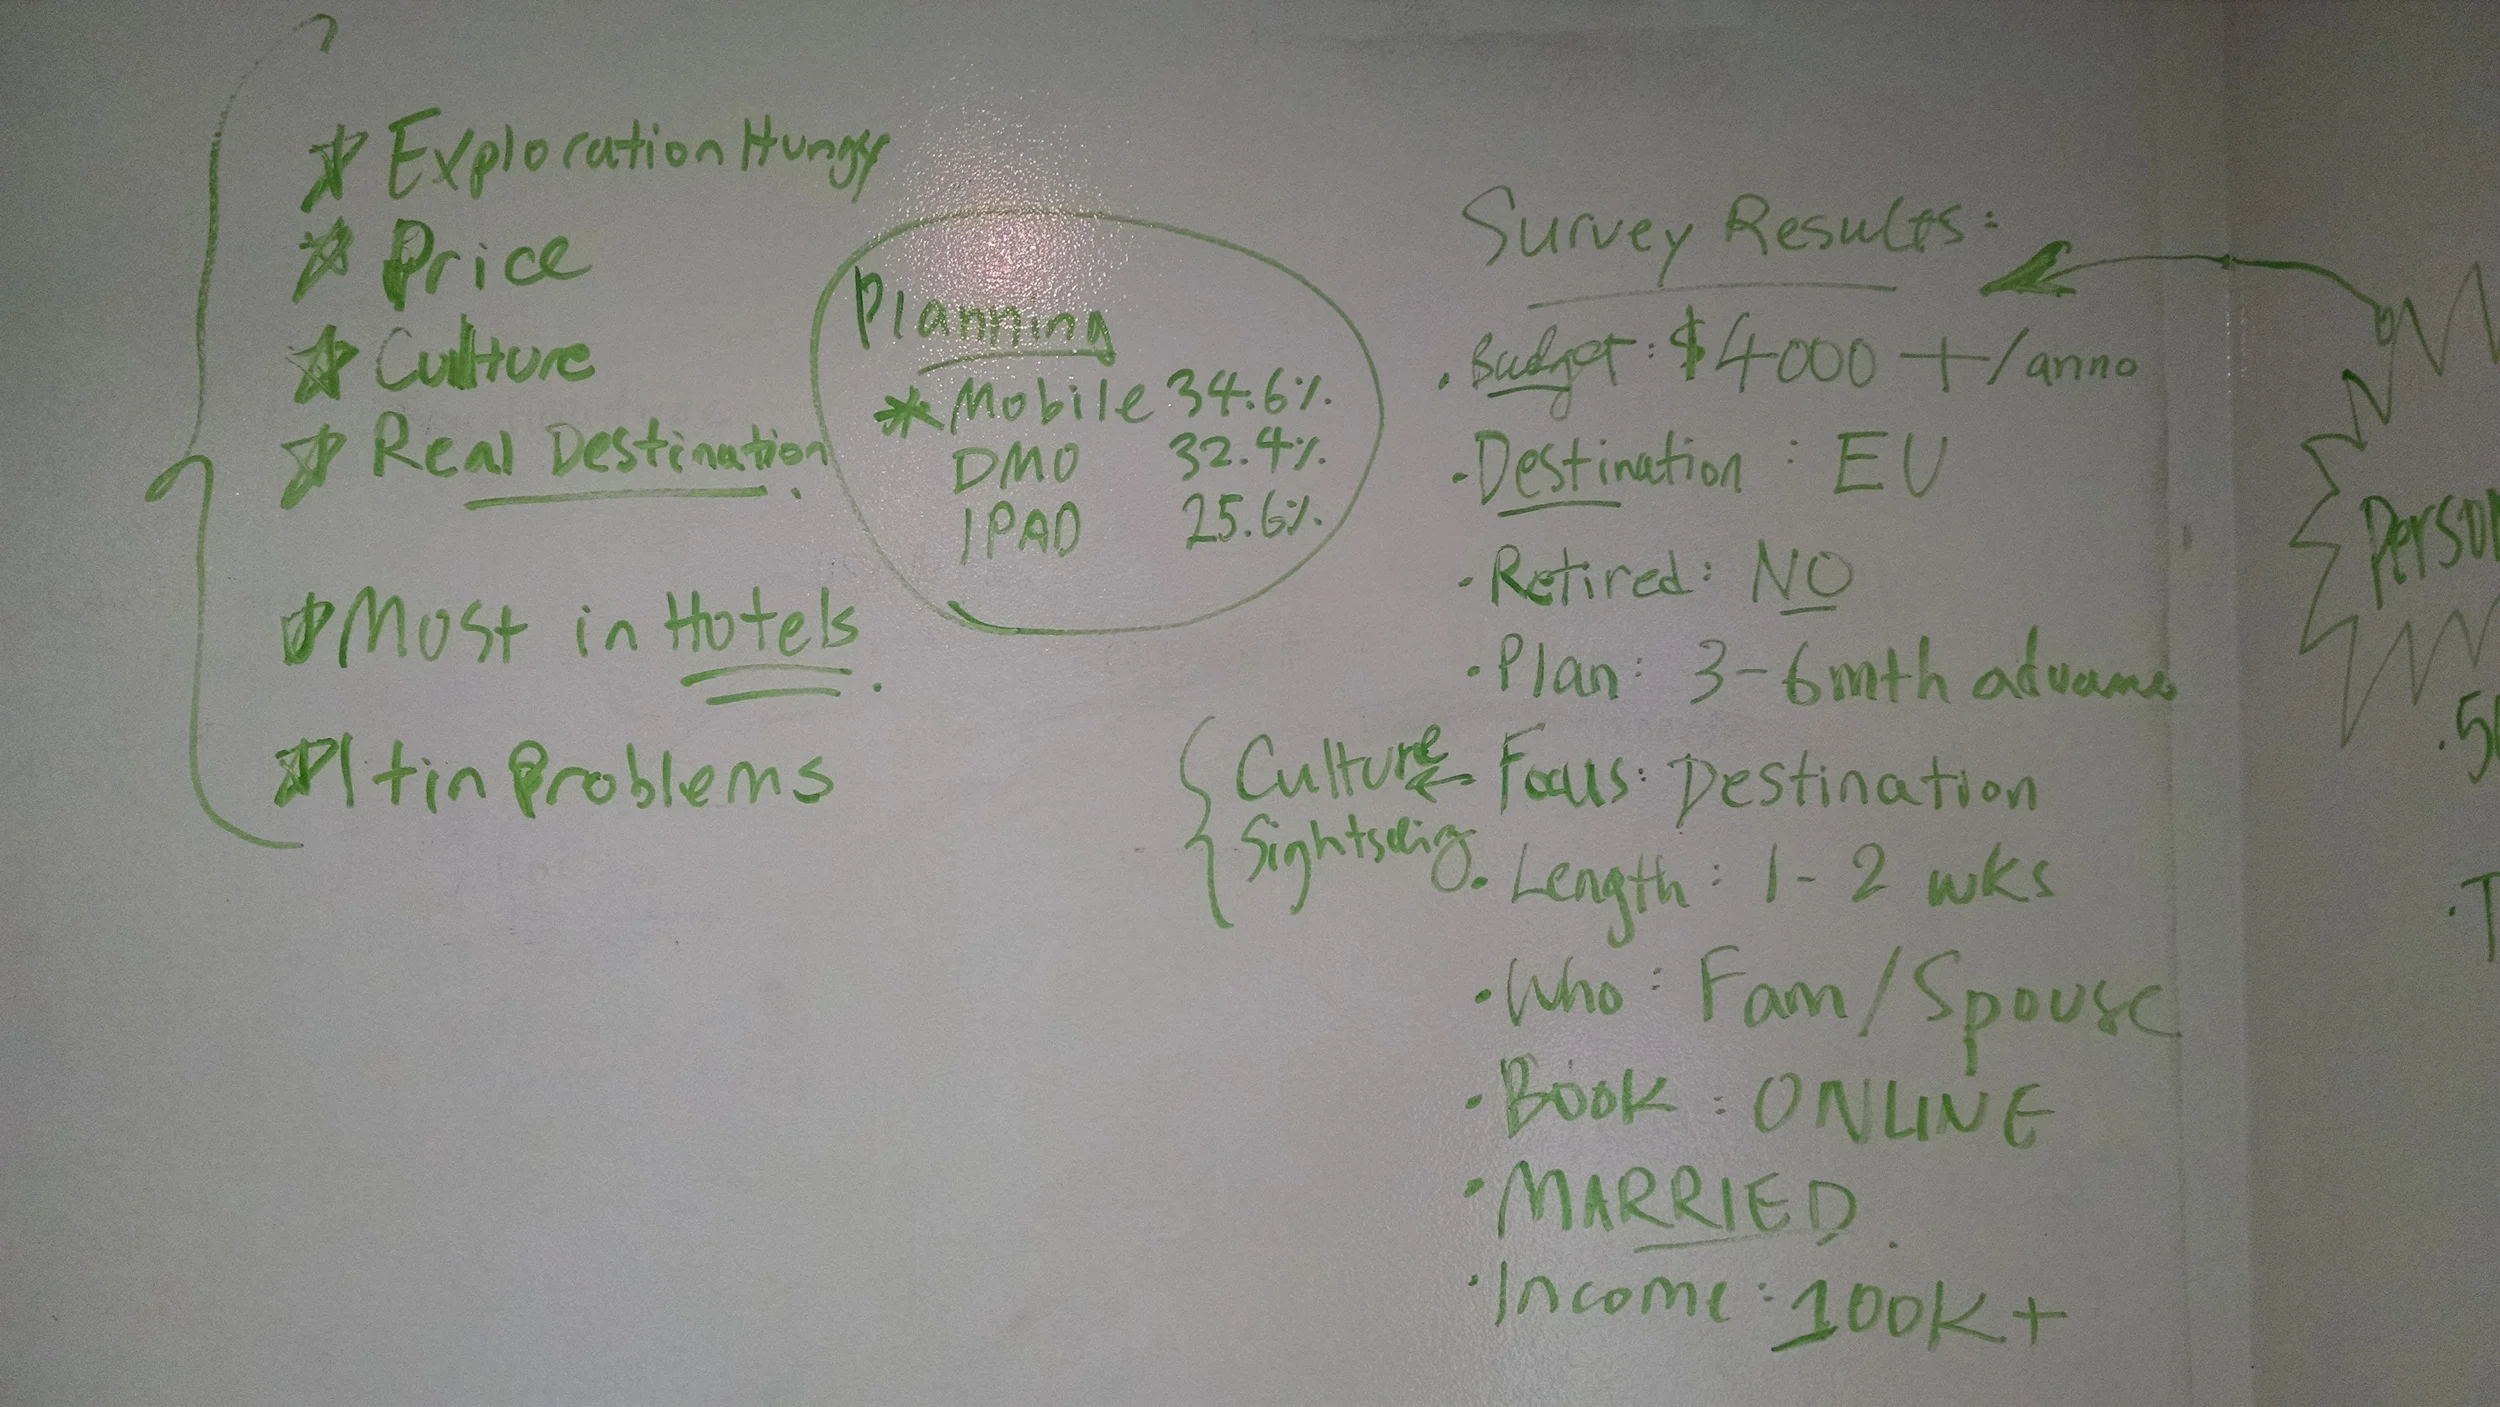 Exploration Hungy
Price
Culture
Real Destination.
Most in Hotels.
Itin Problems
Planning
* Mobile 34.6%
DMO 32.4%
IPAD 25.6%
Survey Results:
· Budget: $4000+/anno
· Destination: EU
· Retired: NO
· Plan: 3-6mth advance
Focus: Destination
Culture
Sightseeing
· Length: 1-2 wks
· Who: Fam/Spouse
· Book: ONLINE
· MARRIED.
· Income: 100K+
Person